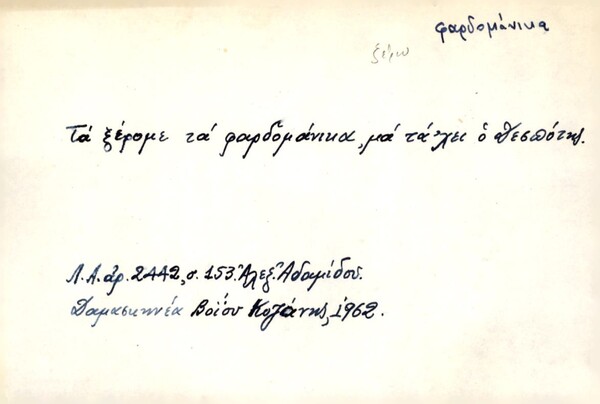 φαρδομάνικα
ξέρω
Τά ξέρομε τά φαρδομάνικα, μά τά 'χει ὁ Δεσπότης.
Λ.Α. ἀρ. 2442, σ. 153. Ἀλεξ. Ἀδαμίδου.
Δαμασκηνέα Βοΐου Κοζάνης, 1962.